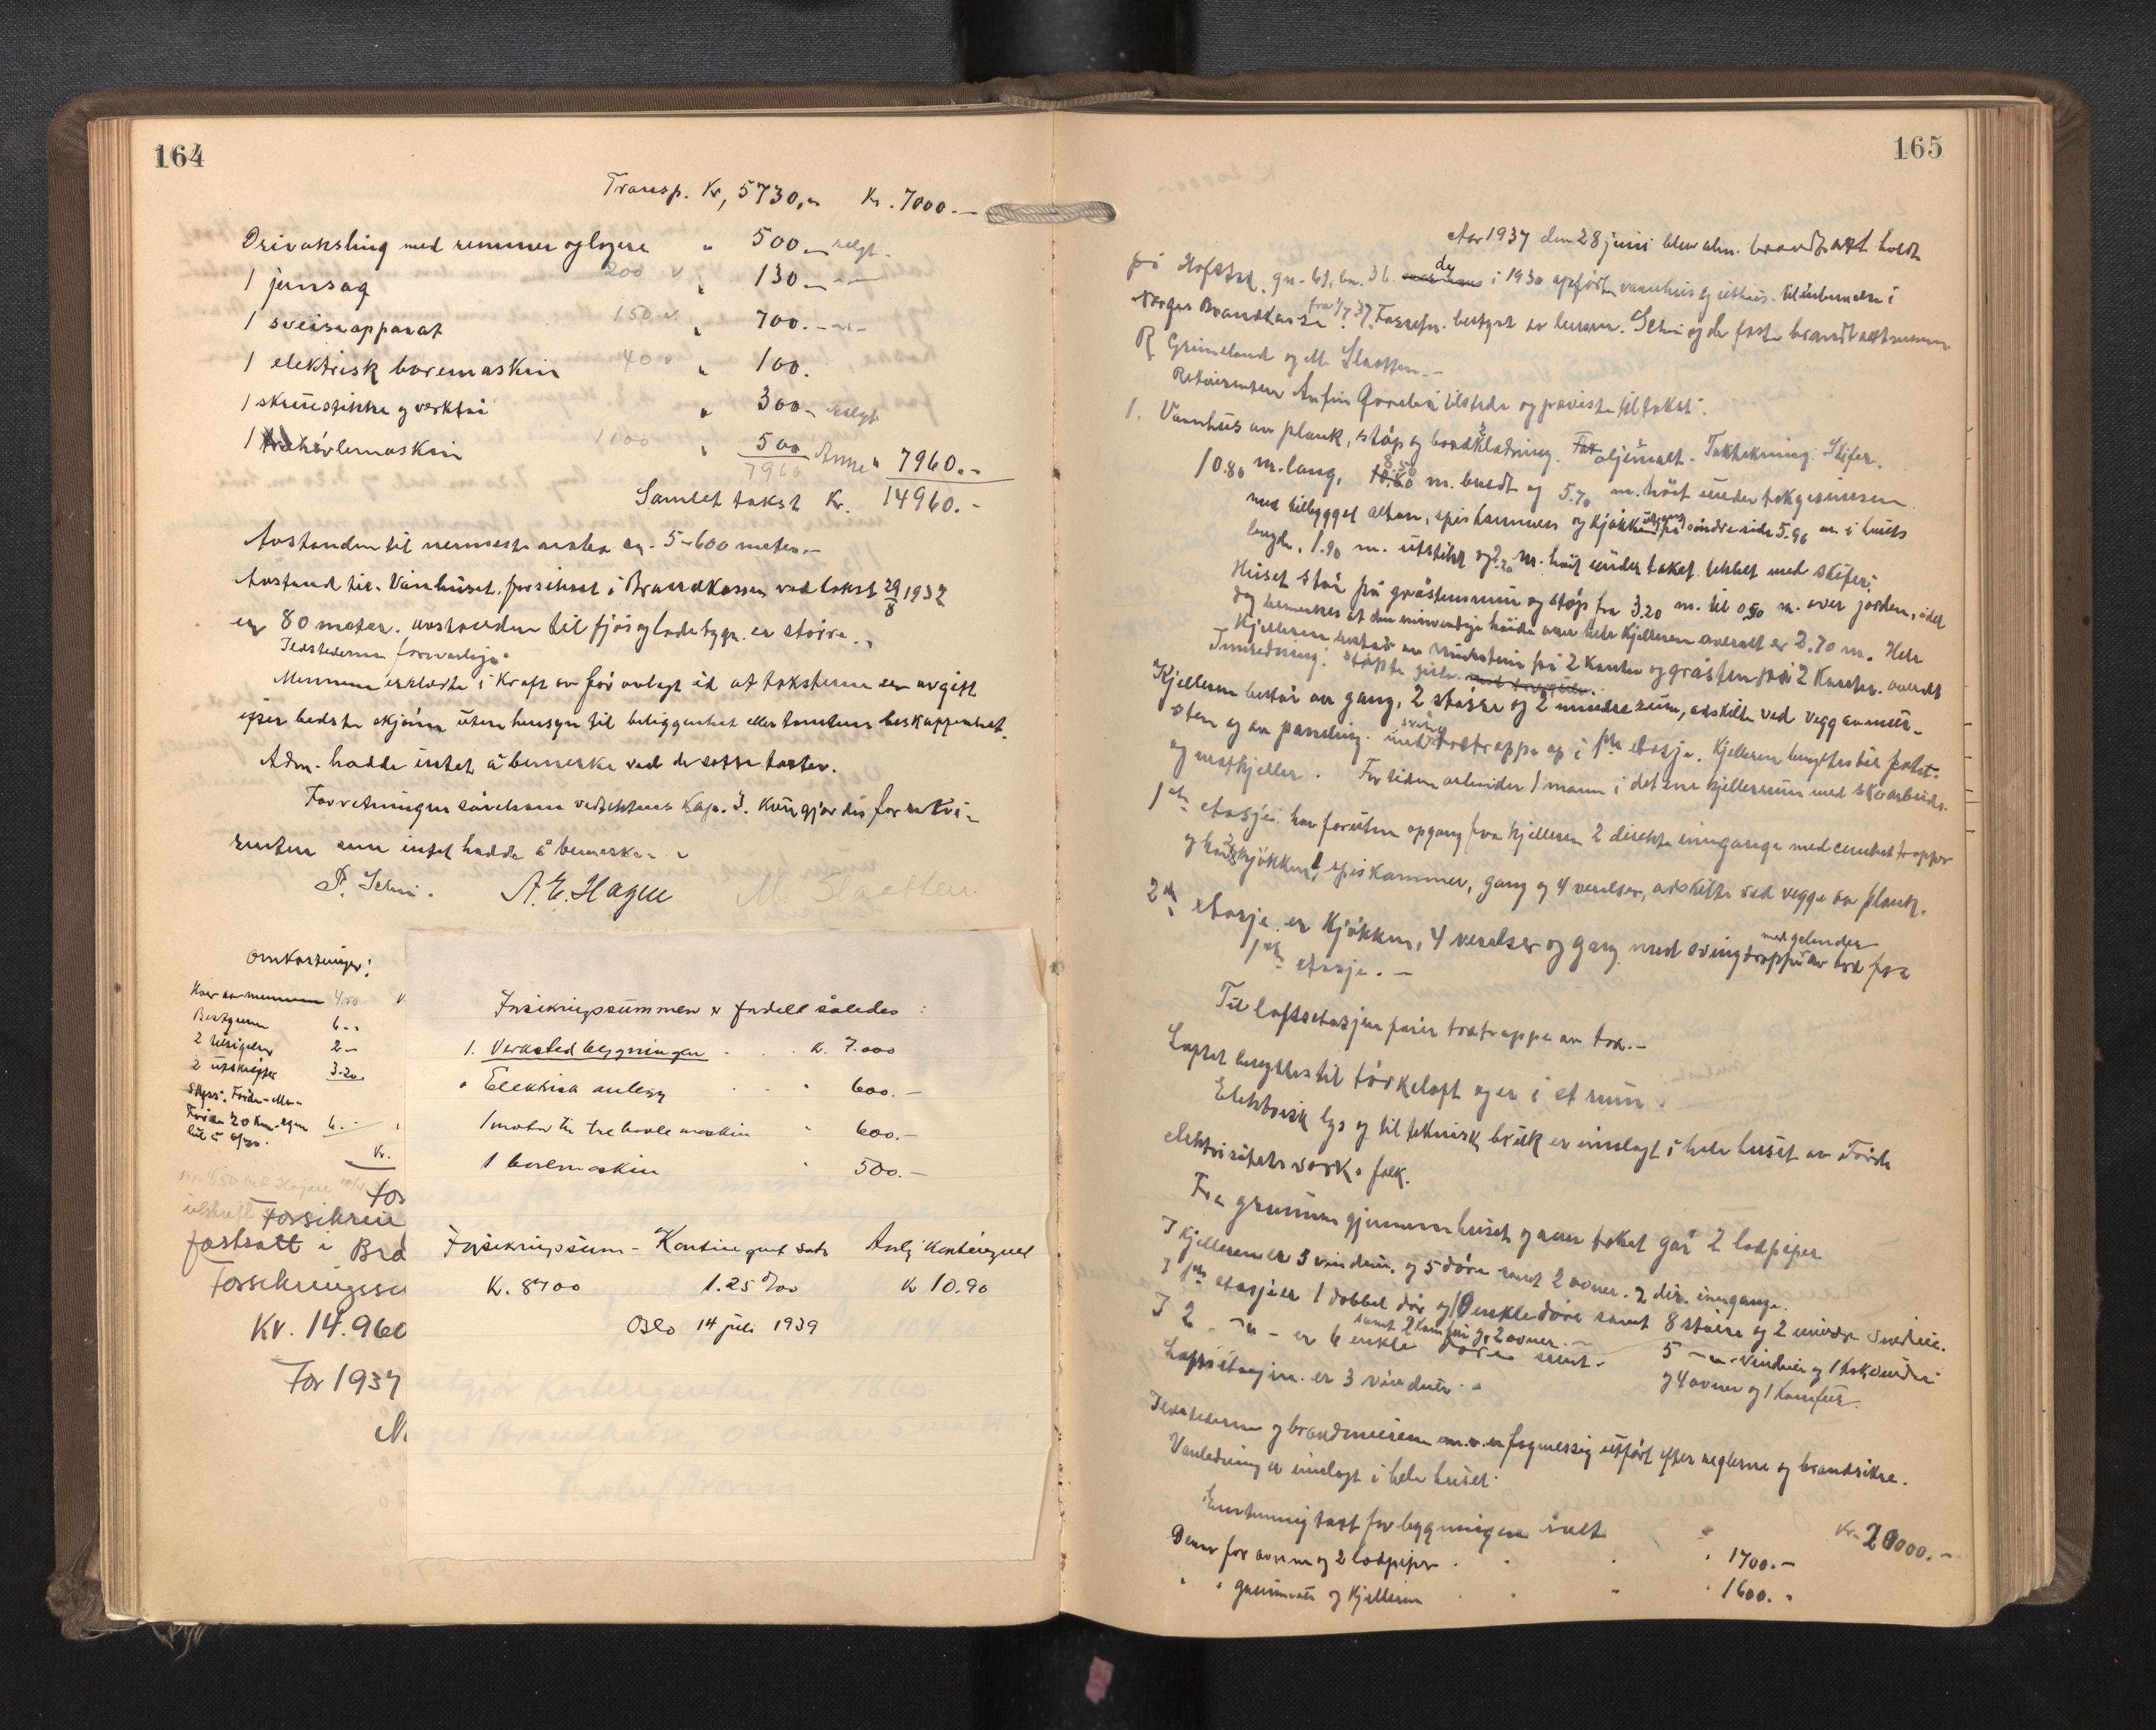 164
Transp. Kr, 5730,- Kr. 7000.-
Drivaksling med remmer og lagere " 500.- solgt.
1 jernsag 200 v " 130.- -"-
1 sveiseapparat 150 v " 700.- -"-
1 elektrisk boremaskin 400 " 100.
1 skruestikke og verktøi " 300.- solgt
1 trehøvlemaskin 1100 " 500 7960.-
7960
Samlet takst Kr. 14960.-
Avstanden til nermeste nabo er. 5-600 meter.-
Avstand til. Vånhuset. forsikret i Brandkassen ved takst 29/8 1932
er 80 meter. avstanden til fjøs og ladebygn. er større.
Ildstederne forsvarlige.
Mennene erklærte i kraft av før avlagt ed at taksterne er avgitt
efter bedste skjønn uten hensyn til beliggenhet eller tomtens beskaffenhet.
Adm. hadde intet å bemerke ved de satte takster.
Forretningen såvelsom vedtektenes Kap. 3. kungjordes for rekvi-
renten som intet hadde å bemerke.
P. Schei. A. E. Hagen M Slaatten.
Omkostninger:
Hver av mennene 4.50
Bestyreren 6.-
2 utskrifter 3.20.
Førde 20 km. egen 6.-
Kr.
Forsikrin
fastsatt i Bra
Forsikringssu
Kr. 14.960
For 1937
Forsikringssummen er fordelt således:
1. Verkstedbygningen . . . K. 7.000
" Elektrisk anlegg . . " 600.-
1 motor til trehøvlemaskin " 600.-
1 boremaskin " 500.-
Forsikringssum - Kontingent sats Årlig Kontingent
K. 8700 1.25 ‰ K 10.90
Oslo 14 juli 1939
165
Aar 1937 den 28 juni blev alm. brandtakst holdt
på Hofstad, gn. 61, bn. 36 de i 1930 opført vaanhus og uthus. til innbemelse i
Norges Brandkasse fra 1/7 37. Forretn. bestyrt av lensm. Schei og de faste brandtakstmenn
R Grimeland og M. Slaatten.-
Rekvirenten Anfin tilstede og påviste til takst.
1. Vaanhus av plank, støp og bordklædning. oljemalt. Taktekning: Skifer.
10.80 m. lang, 8.50 m. bredt og 5.70 m. høit under takgesimsen
med tilbygget altan, spiskammer og kjøkkenutgang på søndre side 5.90 m. i husets
lengde, 1.90 m. utstikk og 2.20 m. høit under taket. tekket med skifer.
Huset står på gråstensmur og støp fra 3.20 m. til 0.50 m. over jorden, idet
dog bemerkes at den innvendige høide over hele kjelleren overalt er 2.70 m. Hele
Kjelleren består av murstein på 2 kanter og gråsten på 2 kanter. overalt
Innredning: støpte gulv.
Kjelleren består av gang, 2 større og 2 mindre rum, adskilte ved vegg av mur-
sten og av paneling. med svingtretrappe op i 1ste etasje. Kjelleren benyttes til potet-
og matkjeller. For tiden arbeider 1 mann i det ene kjellerrum med skoarbeide.
1ste etasje: har foruten opgang fra kjelleren 2 direkte innganger med cementtrapper
og har kjøkken, 1 spiskammer, gang og 4 verelser, adskilte ved vegge av plank.
2den etasje. er Kjøkken, 4 verelser og gang med svingtrappe med gelender av tre fra
1ste etasje. -
Til loftsetasjen fører tretrappe av tre.-
Loftet benyttes til tørkeloft og er i et rum.
Elektrisk lys og til teknisk bruk er innlagt i hele huset av Førde
elektrisitetsverks folk.
Fra grunnen gjennem huset og over taket går 2 lodpiper
I kjelleren er 3 vinduer. og 5 døre samt 2 ovner. 2 dir. innganger.
I 1ste etasje er 1 dobbel dør og 10 enkle døre samt 8 større og 2 mindre vinduer.
samt 2 komfur og 2 ovner.-
I 2 -"- er 6 enkle døre samt. 5 -"- vinduer og 1 takvindu
og 4 ovner og 1 komfur.
Loftsetasjen. er 3 vinduer.-
Ildstederne og brandmurene m.v. er fagmessig utført efter reglerne og brandsikre.
Vanledning er innlagt i hele huset.
Enstemmig takst for bygningen i alt Kr. 20000.-
Derav for ovnene og 2 lodpiper . . . 1700.-
" " grunnmur og Kjelleren . . . 1600.-